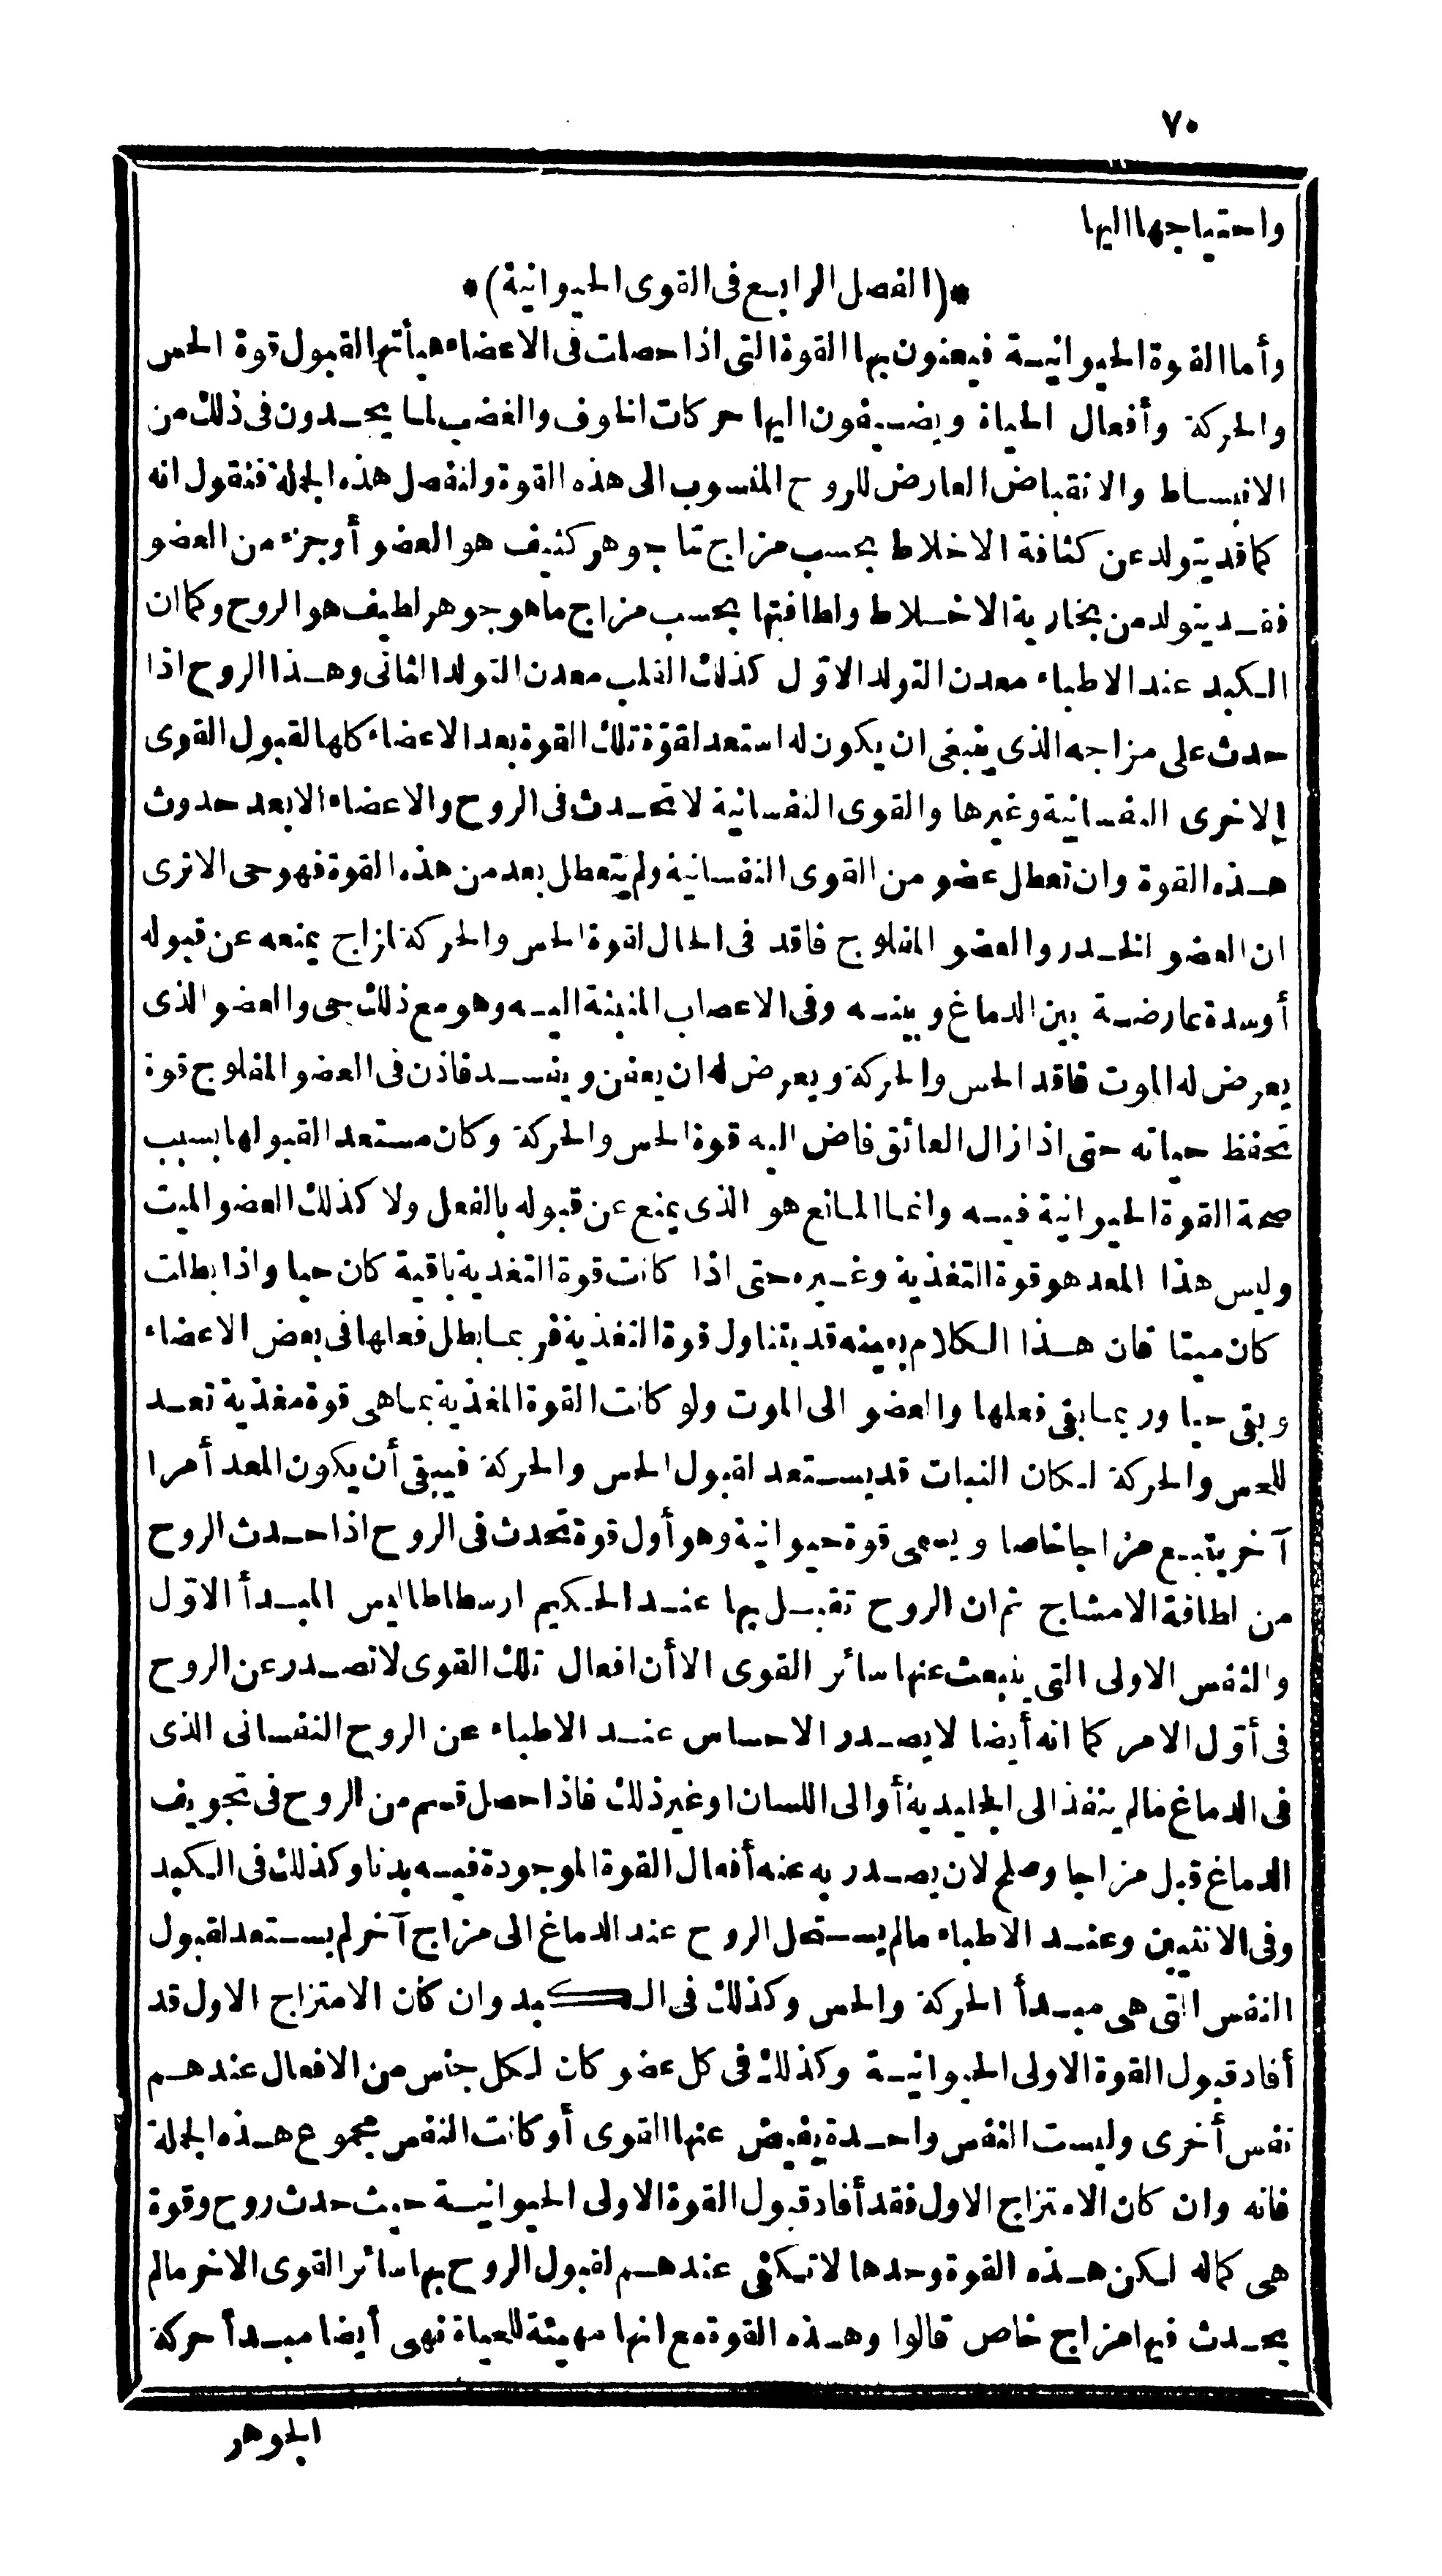 ٧٠
واحتياجها اليها
*(الفصل الرابع فى القوى الحيوانية)*
وأما القوة الحيوانية فيعنون بها القوة التى اذا حصلت فى الاعضاء هيأتها لقبول قوة الحس
والحركة وأفعال الحياة ويضيفون اليها حركات الخوف والغضب لما يجدون فى ذلك من
الانبساط والانقباض العارض للروح المنسوب الى هذه القوة ولنفصل هذه الجملة فنقول انه
كما قد يتولد عن كثافة الاخلاط بحسب مزاج تما جوهر كثيف هو العضو أو جزء من العضو
فقد يتولد من بخارية الاخلاط ولطافتها بحسب مزاج ما هو جوهر لطيف هو الروح وكما ان
الكبد عند الاطباء معدن التولد الاوّل كذلك القلب معدن التولد الثانى وهذا الروح اذا
حدث على مزاجه الذى ينبغى ان يكون له استعد لقوّة تلك القوة بعد الاعضاء كلها لقبول القوى
الاخرى النفسانية وغيرها والقوى النفسانية لا تحدث فى الروح والاعضاء الا بعد حدوث
هذه القوة وان تعطل عضو من القوى النفسانية ولم يتعطل بعد من هذه القوة فهو حى الا ترى
ان العضو الخدر والعضو المفلوج فاقد فى الحال لقوة الحس والحركة لمزاج يمنعه عن قبوله
أو سدة عارضة بين الدماغ وبينه وفى الاعصاب المنبثة اليه وهو مع ذلك حى والعضو الذى
يعرض له الموت فاقد الحس والحركة ويعرض له ان يعفن ويفسد فاذن فى العضو المفلوج قوة
تحفظ حياته حتى اذا زال العائق فاض اليه قوة الحس والحركة وكان مستعد القبولها بسبب
صحة القوة الحيوانية فيه وانما المانع هو الذى يمنع عن قبوله بالفعل ولا كذلك العضو الميت
وليس هذا المعد هو قوة التغذية وغيره حتى اذا كانت قوة التغذية باقية كان حيا واذا بطلت
كان ميتا فان هذا الكلام بعينه قد يتناول قوة التغذية فربما بطل فعلها فى بعض الاعضاء
وبقى حيا وربما بقى فعلها والعضو الى الموت ولو كانت القوة المغذية بما هى قوة مغذية تعد
للحس والحركة لكان النبات قد يستعد لقبول الحس والحركة فيبقى أن يكون المعد أمرا
آخر يتبع مزاجا خاصا ويسمى قوة حيوانية وهو أول قوة تحدث فى الروح اذا حدث الروح
من لطافة الامشاج ثم ان الروح تقبل بها عند الحكيم ارسطاطاليس المبدأ الاوّل
والنفس الاولى التى ينبعث عنها سائر القوى الا أن افعال تلك القوى لا تصدر عن الروح
فى أوّل الامر كما انه أيضا لا يصدر الاحساس عند الاطباء عن الروح النفسانى الذى
فى الدماغ مالم ينفذ الى الجليدية أو الى اللسان او غير ذلك فاذا حصل قسم من الروح فى تجويف
الدماغ قبل مزاجا وصلح لان يصدر به عنه أفعال القوة الموجودة فيه بدنا وكذلك فى الكبد
وفى الانثيين وعند الاطباء مالم يستحل الروح عند الدماغ الى مزاج آخر لم يستعد لقبول
النفس التى هى مبدأ الحركة والحس وكذلك فى الكبد وان كان الامتزاج الاول قد
أفاد قبول القوة الاولى الحيوانية وكذلك فى كل عضو كان لكل جنس من الافعال عندهم
نفس أخرى وليست النفس واحدة يفيض عنها القوى أو كانت النفس مجموع هذه الجملة
فانه وان كان الامتزاج الاول فقد أفاد قبول القوة الاولى الحيوانية حيث حدث روح وقوة
هى كماله لكن هذه القوة وحدها لا تكفى عندهم لقبول الروح بها سائر القوى الاخر مالم
يحدث فيها مزاج خاص قالوا وهذه القوة مع انها مهيئة للحياة فهى أيضا مبدأ حركة
الجوهر